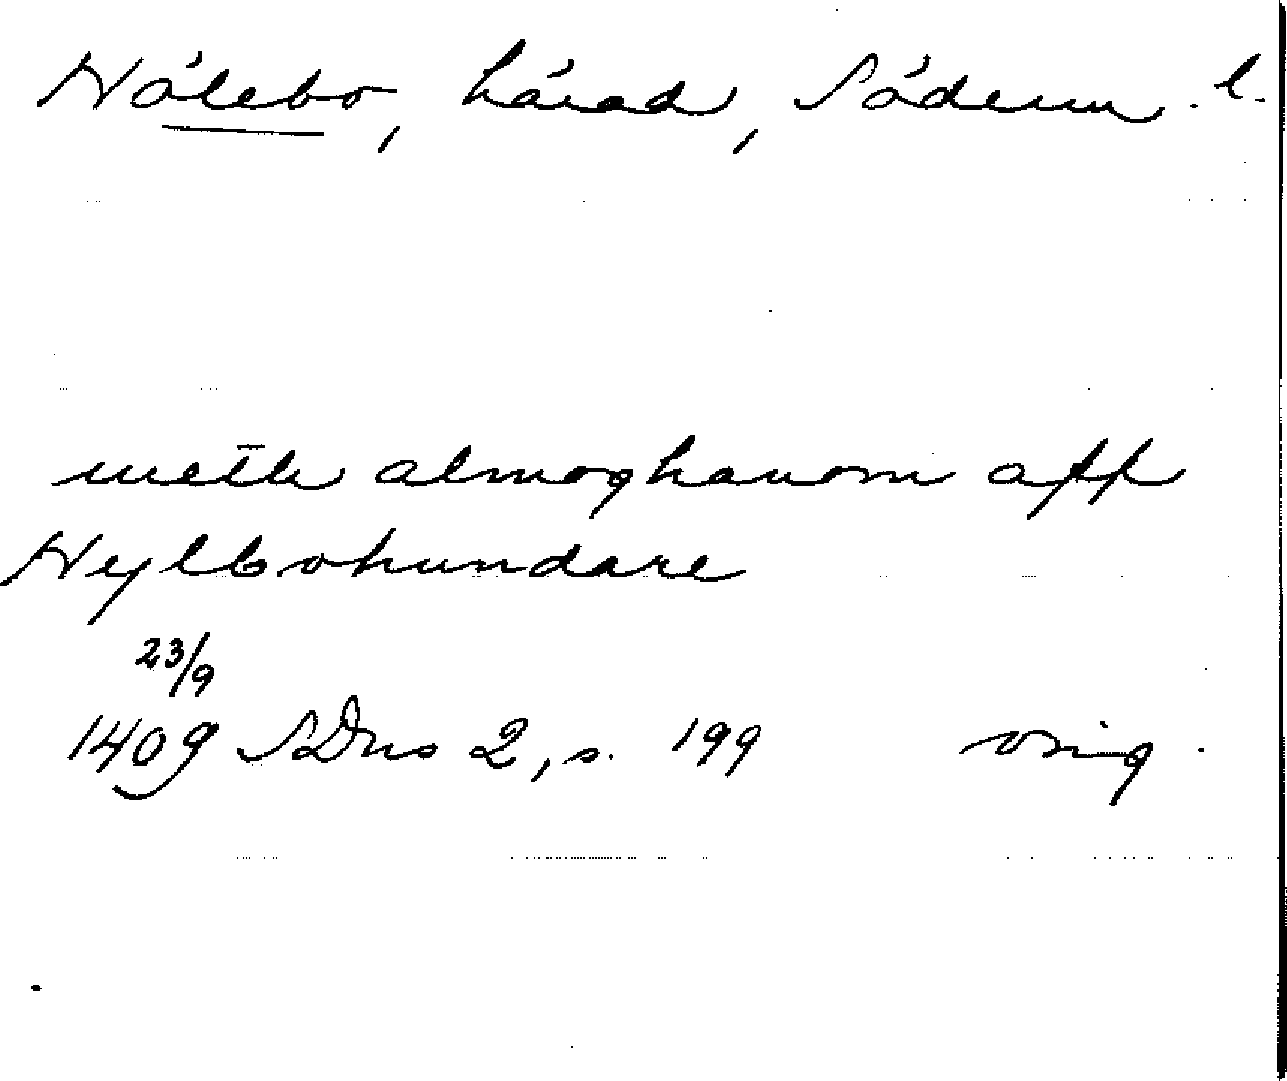 Hölebo, härad, Söderm. l.
meth almoghanom aff
Hylbohundare
23/9
1409 SDns 2, s. 199 orig.